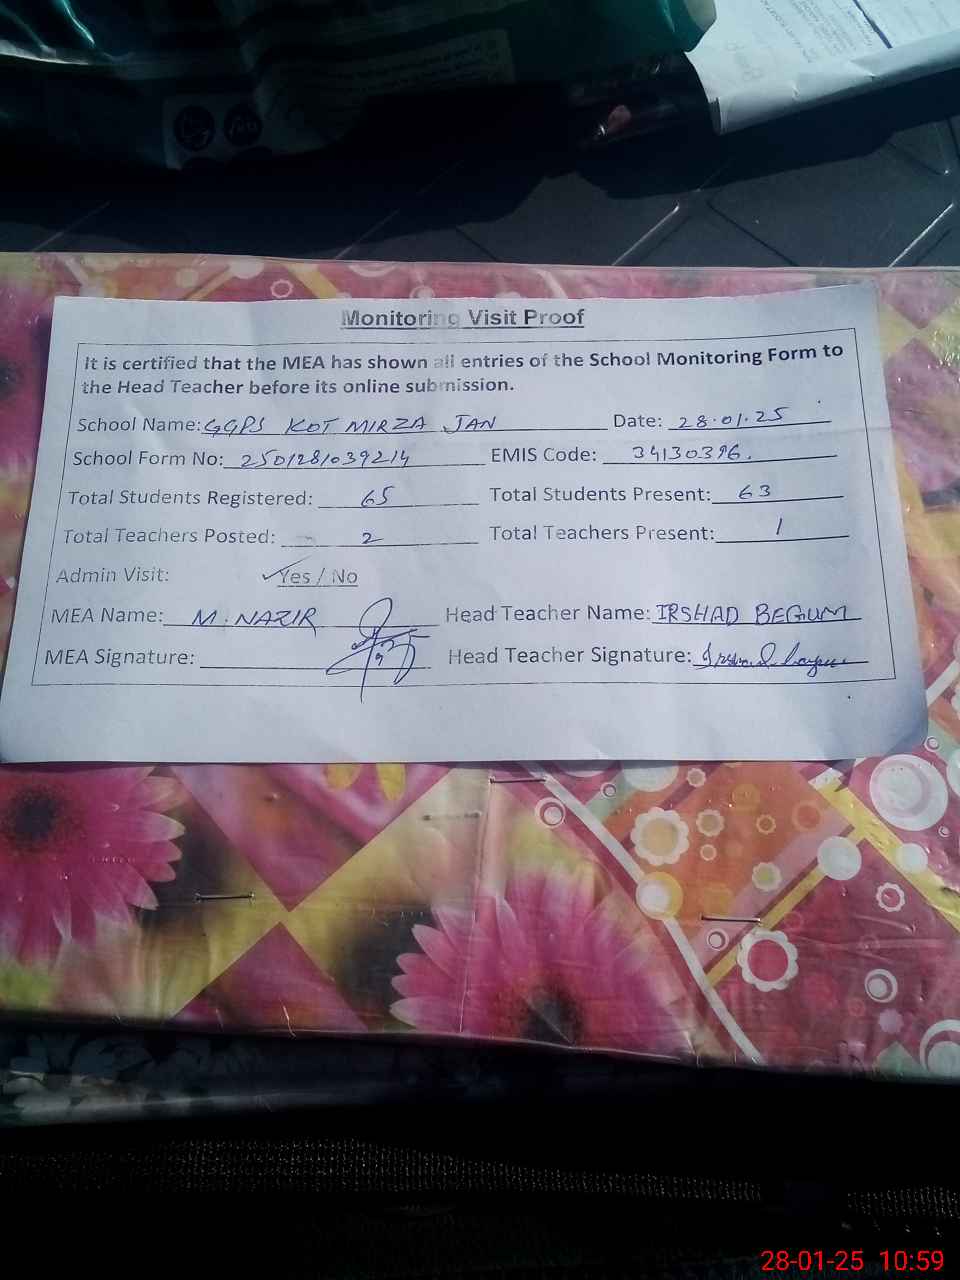 Monitoring Visit Proof
It is certified that the MEA has shown all entries of the School Monitoring Form to
the Head Teacher before its online submission.
School Name: GGPS KOT MIRZA JAN Date: 28.01.25
School Form No: 2501281039214 EMIS Code: 34130396.
Total Students Registered: 65 Total Students Present: 63
Total Teachers Posted: 2 Total Teachers Present: 1
Admin Visit: ✓Yes / No
MEA Name: M. NAZIR Head Teacher Name: IRSHAD BEGUM
MEA Signature: Head Teacher Signature: Irshad Begum
28-01-25 10:59